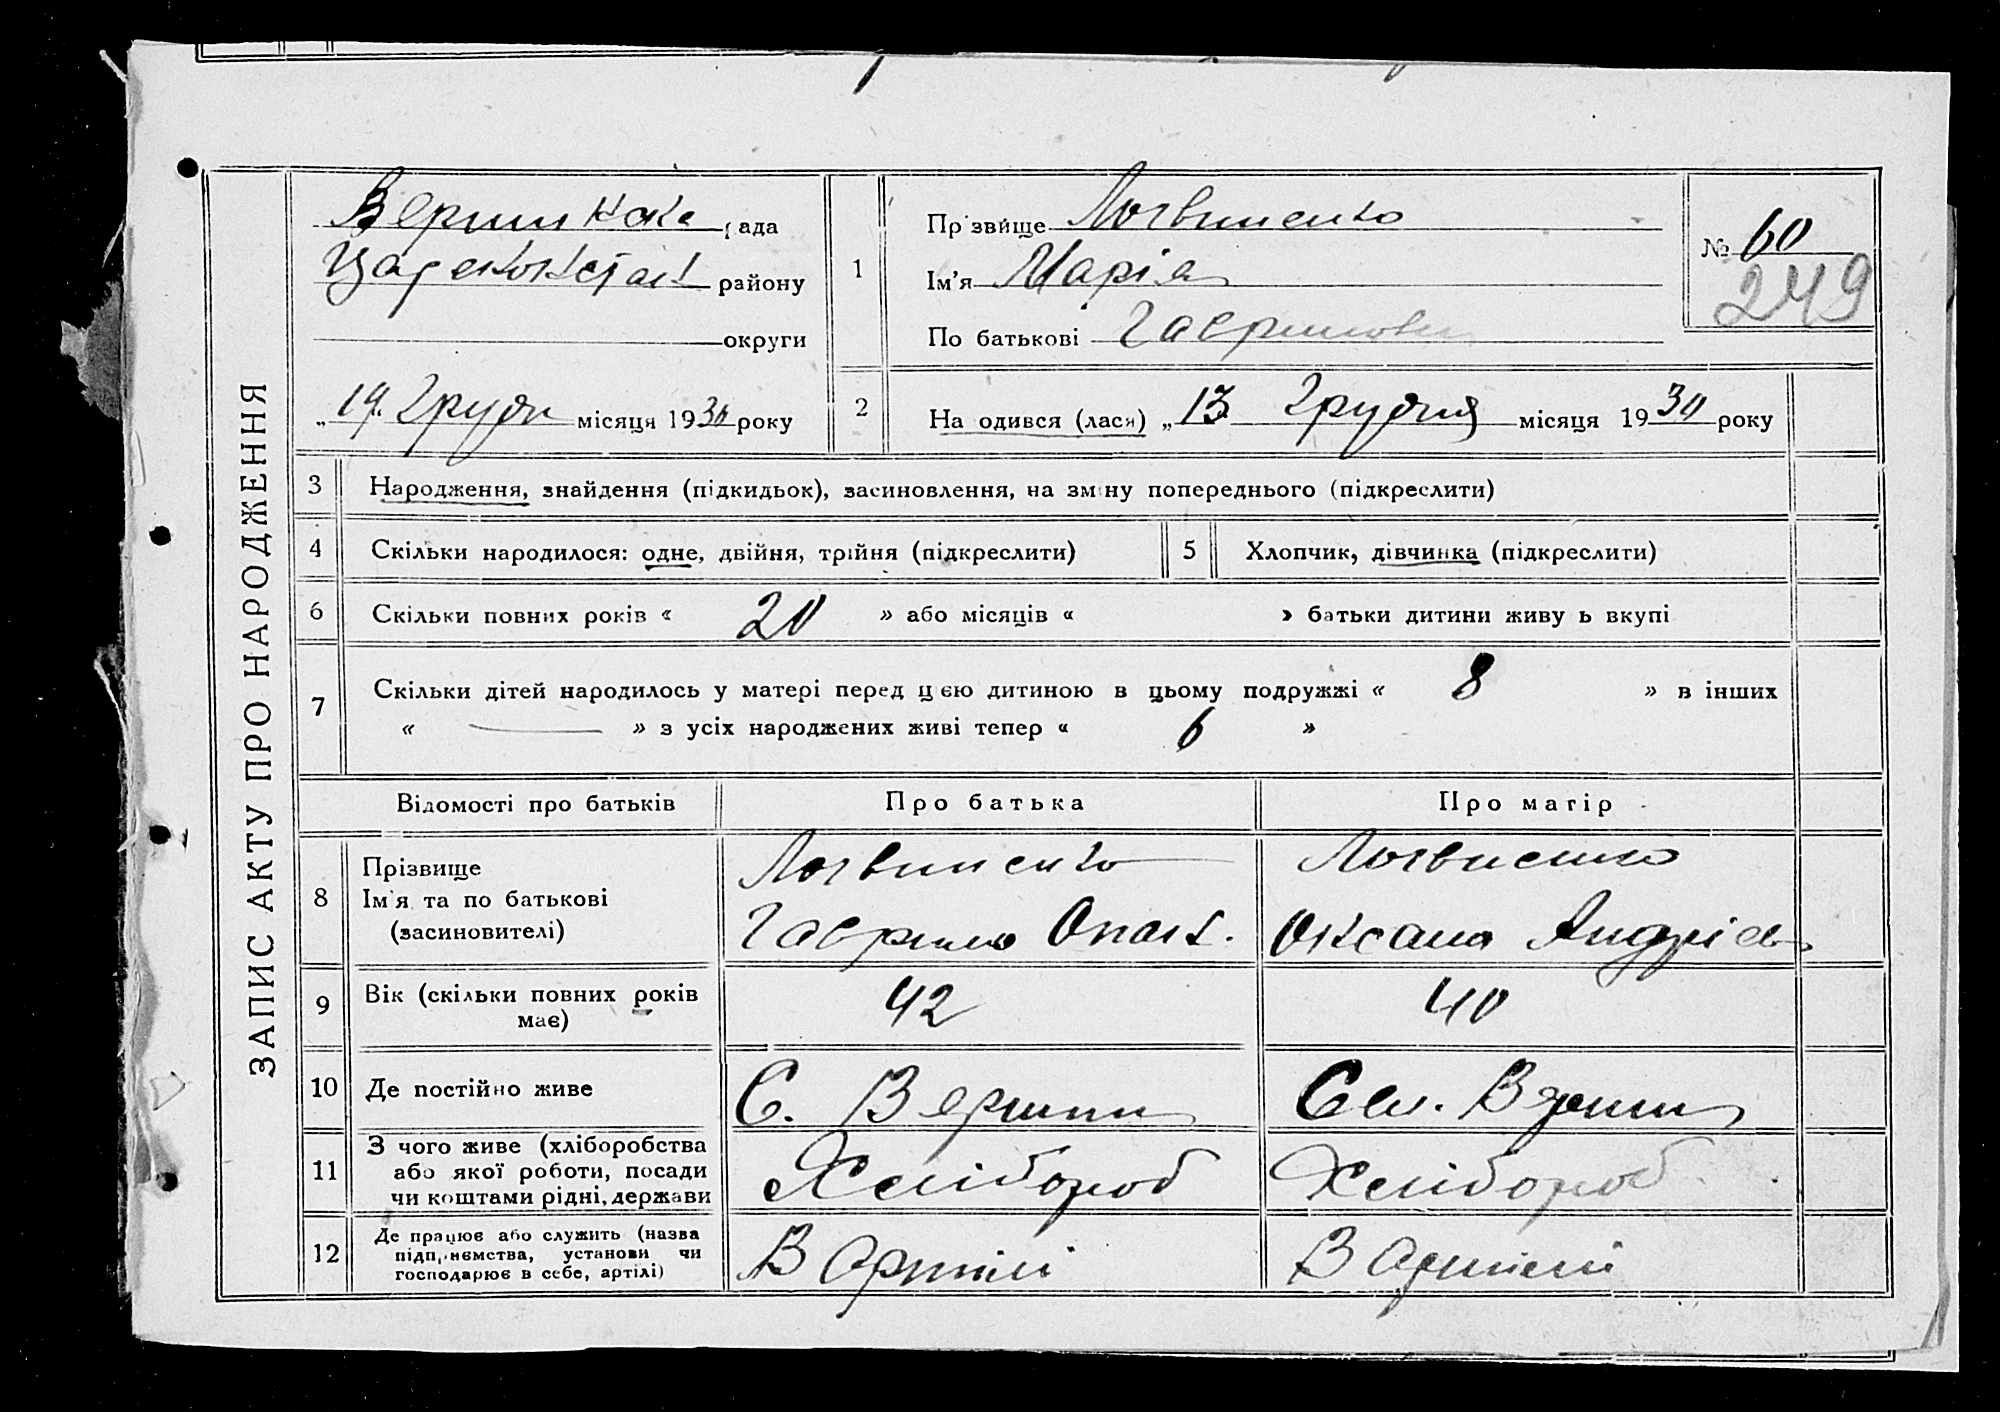 ЗАПИС АКТУ ПРО НАРОДЖЕННЯ
Вершинська рада
Царекокстан району
округи
„19" Грудн місяця 1930 року
1
Прізвище Логвиненко
Ім'я Марія
По батькові Гаврилови
№ 60
249
2
На одився (лася) „13 Грудня місяця 1930 року
3 Народження, знайдення (підкидьок), засиновлення, на зміну попереднього (підкреслити)
4 Скільки народилося: одне, двійня, трійня (підкреслити) 5 Хлопчик, дівчинка (підкреслити)
6 Скільки повних років « 20 » або місяців « » батьки дитини живу ь вкупі
7 Скільки дітей народилось у матері перед цєю дитиною в цьому подружжі « 8 » в інших
« — » з усіх народжених живі тепер « 6 »
Відомості про батьків Про батька Про матір
8 Прізвище Логвиненко Логвиенко
Ім'я та по батькові Гаврило Опан. Оксана Андрієв
(засиновителі)
9 Вік (скільки повних років 42 40
має)
10 Де постійно живе С. Вершини Сел. Вершин
11 З чого живе (хліборобства Хлібороб Хлібороб
або якої роботи, посади
чи коштами рідні, держави
12 Де працює або служить (назва В Артілі В Артілі
підп,иємства, установи чи
господарює в себе, артілі)